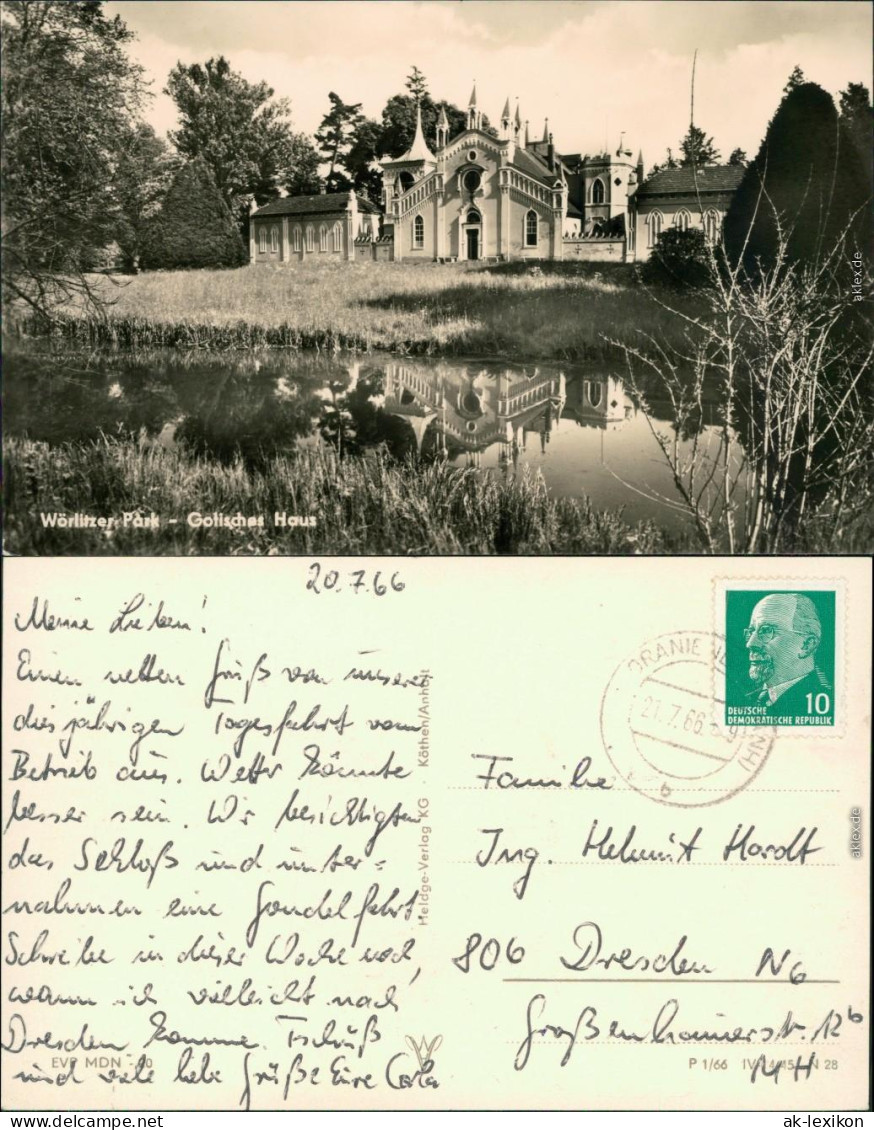 Wörlitzer Park - Gotisches Haus
aklex.de
20.7.66
Meine Lieben!
Einen netten Gruß von unserer
diesjährigen Tagesfahrt vom
Betrieb aus. Wetter könnte
besser sein. Wir besichtigten
das Schloß und unter=
nahmen eine Gondelfahrt.
Schreibe in dieser Woche noch,
wann ich vielleicht nach
Dresden komme. Tschüß
und viele liebe Grüße Eure Carla
EVP MDN
Heldge-Verlag KG · Köthen/Anhalt
21.7.66
b
DEUTSCHE
DEMOKRATISCHE REPUBLIK
10
Familie
Ing. Helmut Hardt
806 Dresden N6
Großenhainerstr. 12b
MH
P 1/66 28
aklex.de
www.delcampe.net
ak-lexikon